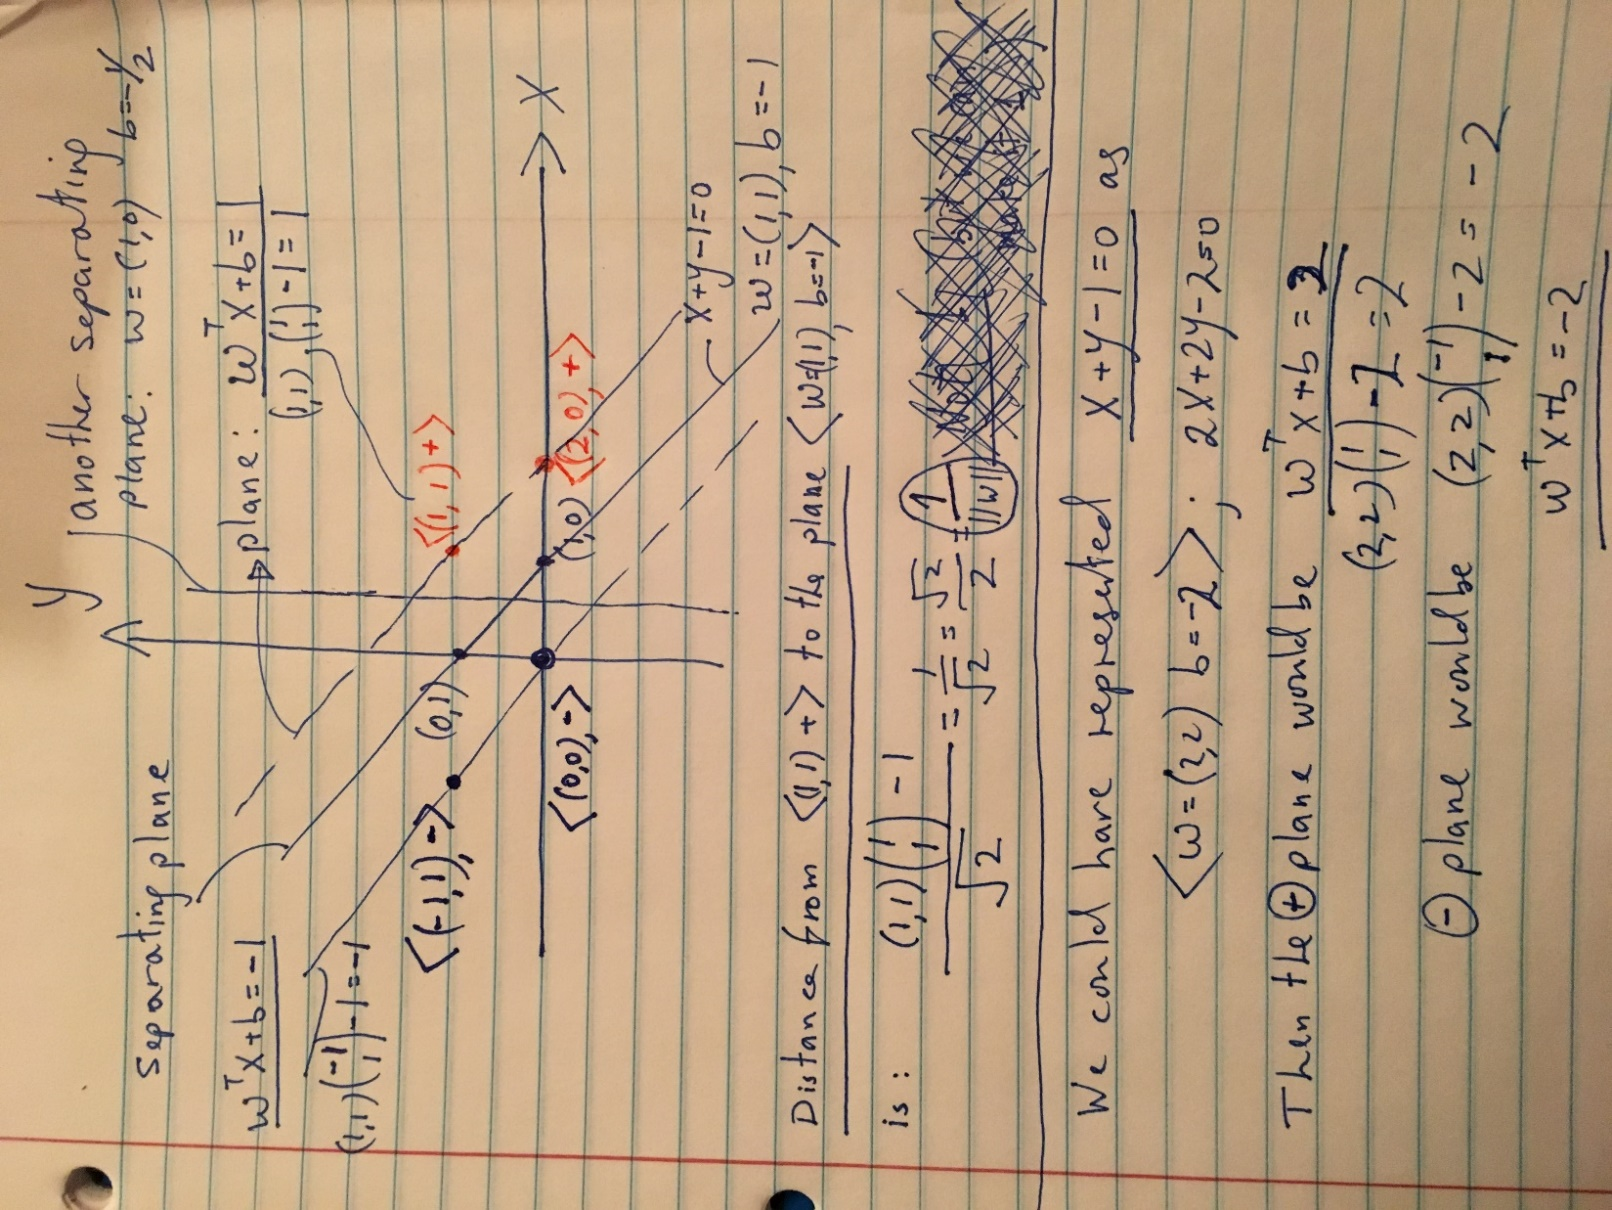 Y
another separating
plane: w=(1,0) b=-1/2
Separating plane
plane: wᵀx+b=1
(1,1)(1 1)-1=1
wᵀx+b=-1
(1,1)(-1 1)-1=-1
<(1,1)+>
<(-1,1),->
(0,1)
X
(1,0)
<(2,0),+>
<(0,0),->
x+y-1=0
w=(1,1), b=-1
Distance from <(1,1)+> to the plane <w=(1,1), b=-1>
is: (1,1)(1 1)-1 / √2 = 1/√2 = √2/2 = 1/||w||
We could have represented x+y-1=0 as
<w=(2,2) b=-2>; 2x+2y-2=0
Then the ⊕ plane would be wᵀx+b=2
(2,2)(1 1)-2=2
⊖ plane would be (2,2)(-1 1)-2=-2
wᵀx+b=-2